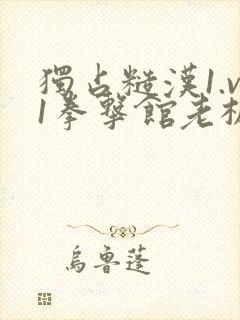 獨占糙漢1.v
1拳擊館老板
烏魯蓬